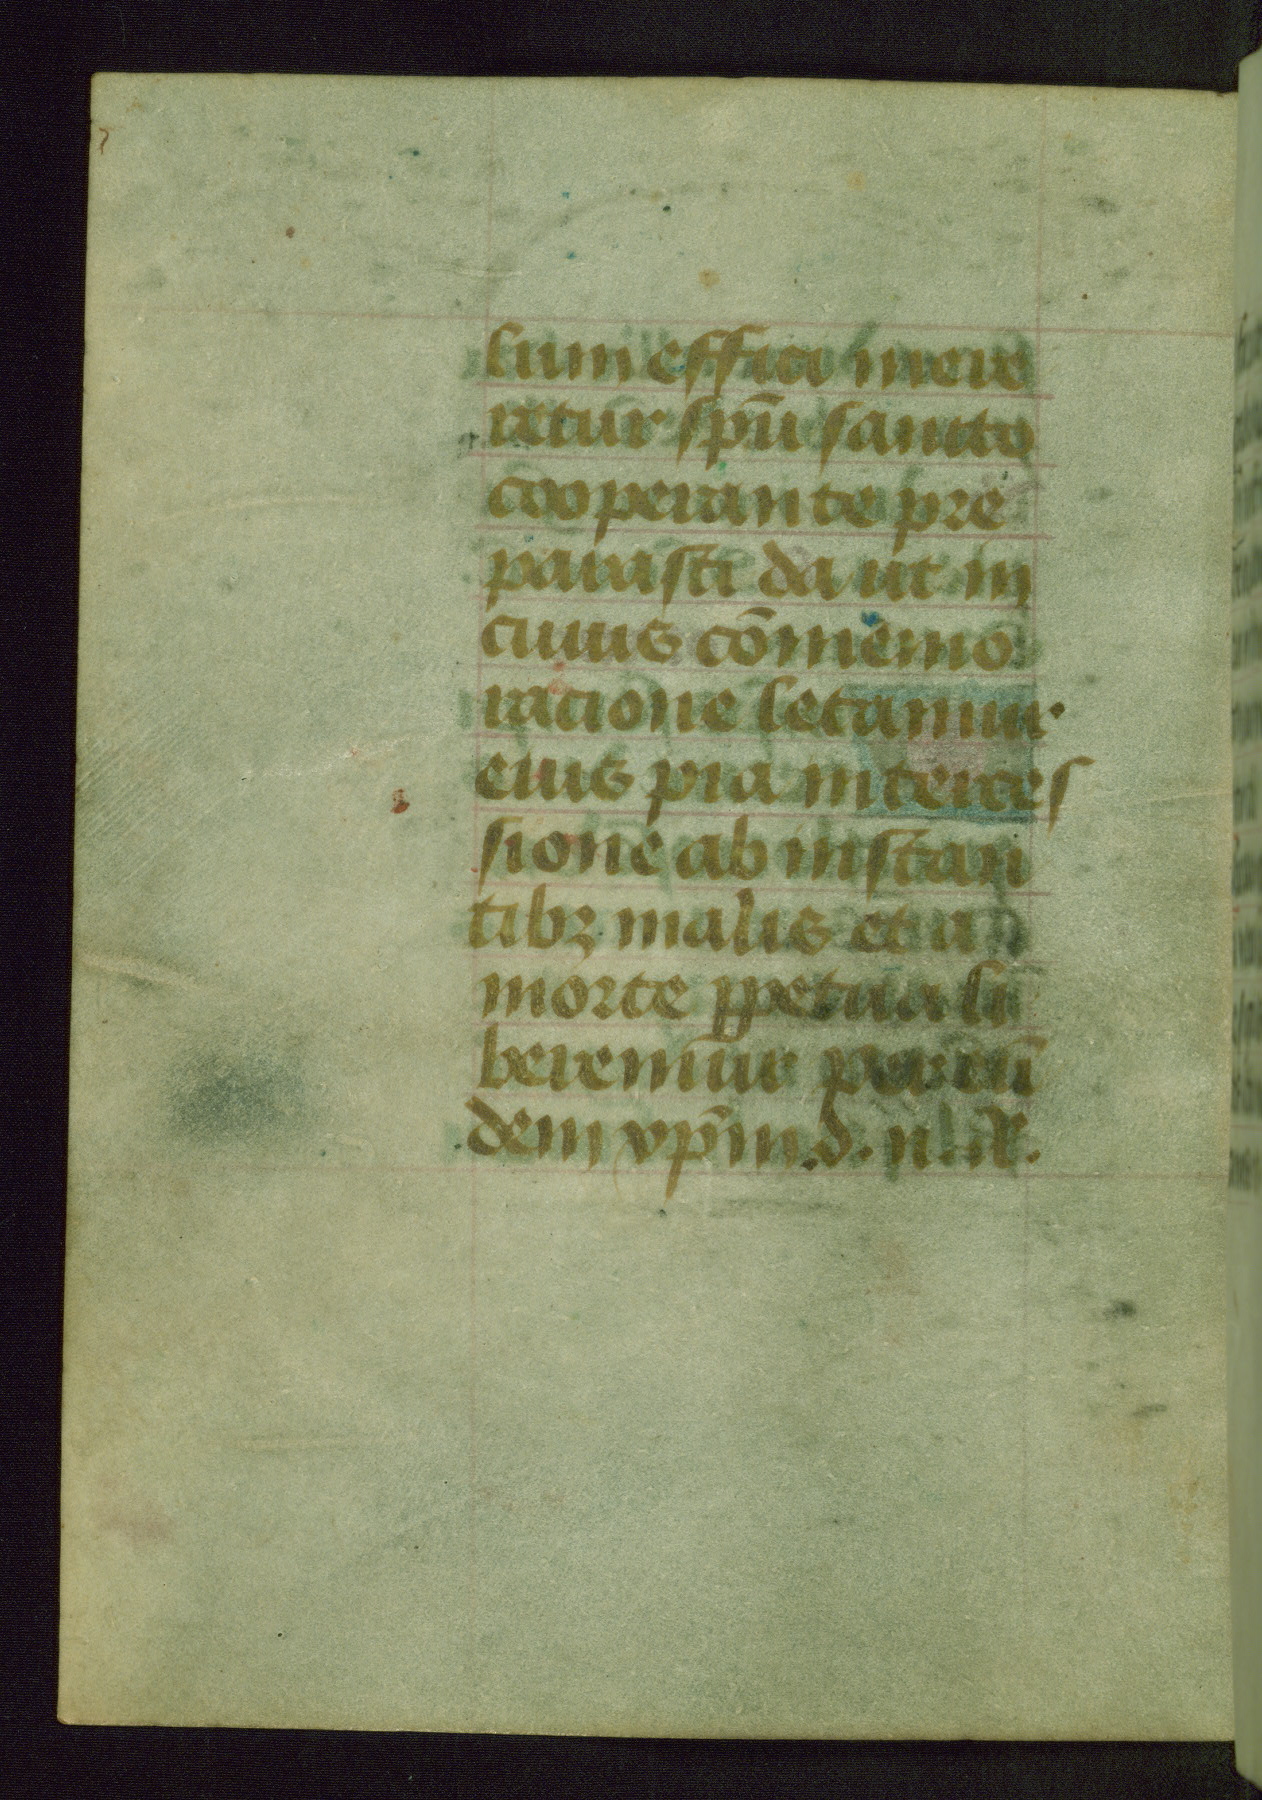 lum effici mere
retur spū sancto
cooperante pre
parasti da ut in
cuius cōmemo
ratione letamur
eius pia interces
sione ab instan
tibꝫ malis et a
morte ꝑpetua li
beremur per eū
dem xp̄m d. n. A.